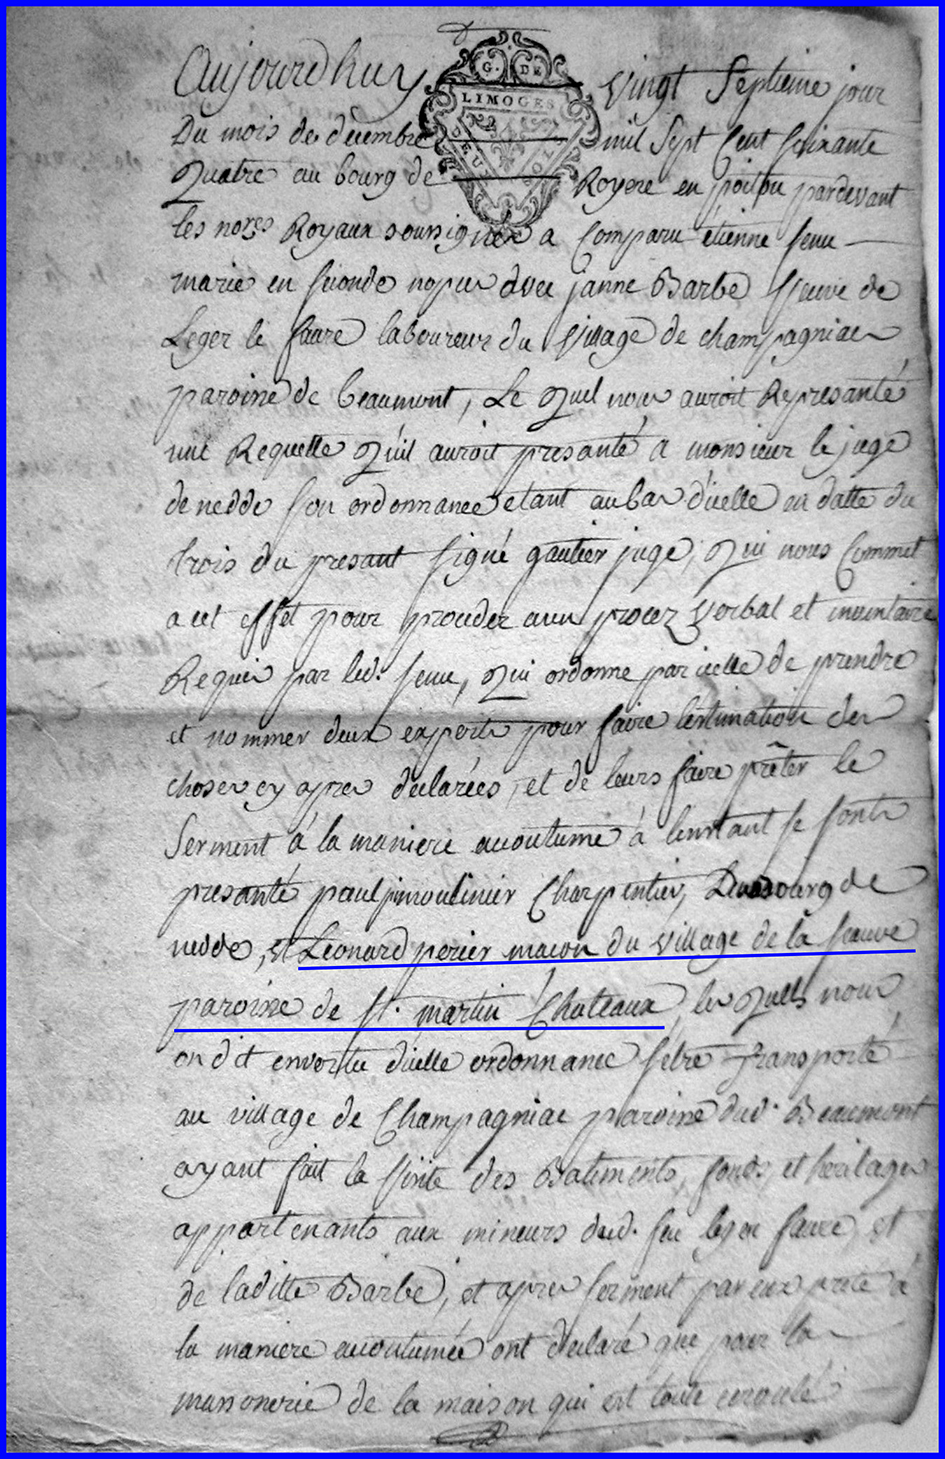 G. DE
LIMOGES
DEUX SOLS
Aujourdhuy vingt Septieme jour
Du mois de decembre mil Sept Cent Soixante
Quatre au bourg de Royere en poitou pardevant
les nores Royaux soussignés a Comparu étienne
marié en seconde nopces avec janne Barbe veuve de
Leger le faure laboureur du village de champagniac
paroisse de beaumont, Le Quel nous auroit Representé
une Requette Qu'il auroit presanté a monsieur le juge
de nedde son ordonnance etant au bas d'icelle en datte du
trois du presant signé gautier juge, Qui nous Commet
a cet effet pour proceder aun procez verbal et inventaire
Requis par led. Qui ordonne par icelle de prendre
et nommer deux experts pour faire lestimation des
choses cy apres declarées, et de leurs faire prêter le
Serment à la maniere accoutumé à linstant se sont
presanté paul jimoulinier Charpentier, Du bourg de
nedde, et Léonard perier macon du village de la feauve
paroisse de St. martin Chateaux, les Quels nous
on dit envertu d'icelle ordonnance s'étre transporté
au village de Champagniac paroisse dud. Beaumont
ayant fait la visite des Batiments, fonds, et héritages
appartenants aux mineurs dud. feu leger faure, et
de laditte Barbe, et apres serment par eux prété à
la maniere accoutumée ont declaré que pour la
massonerie de la maison qui est toute